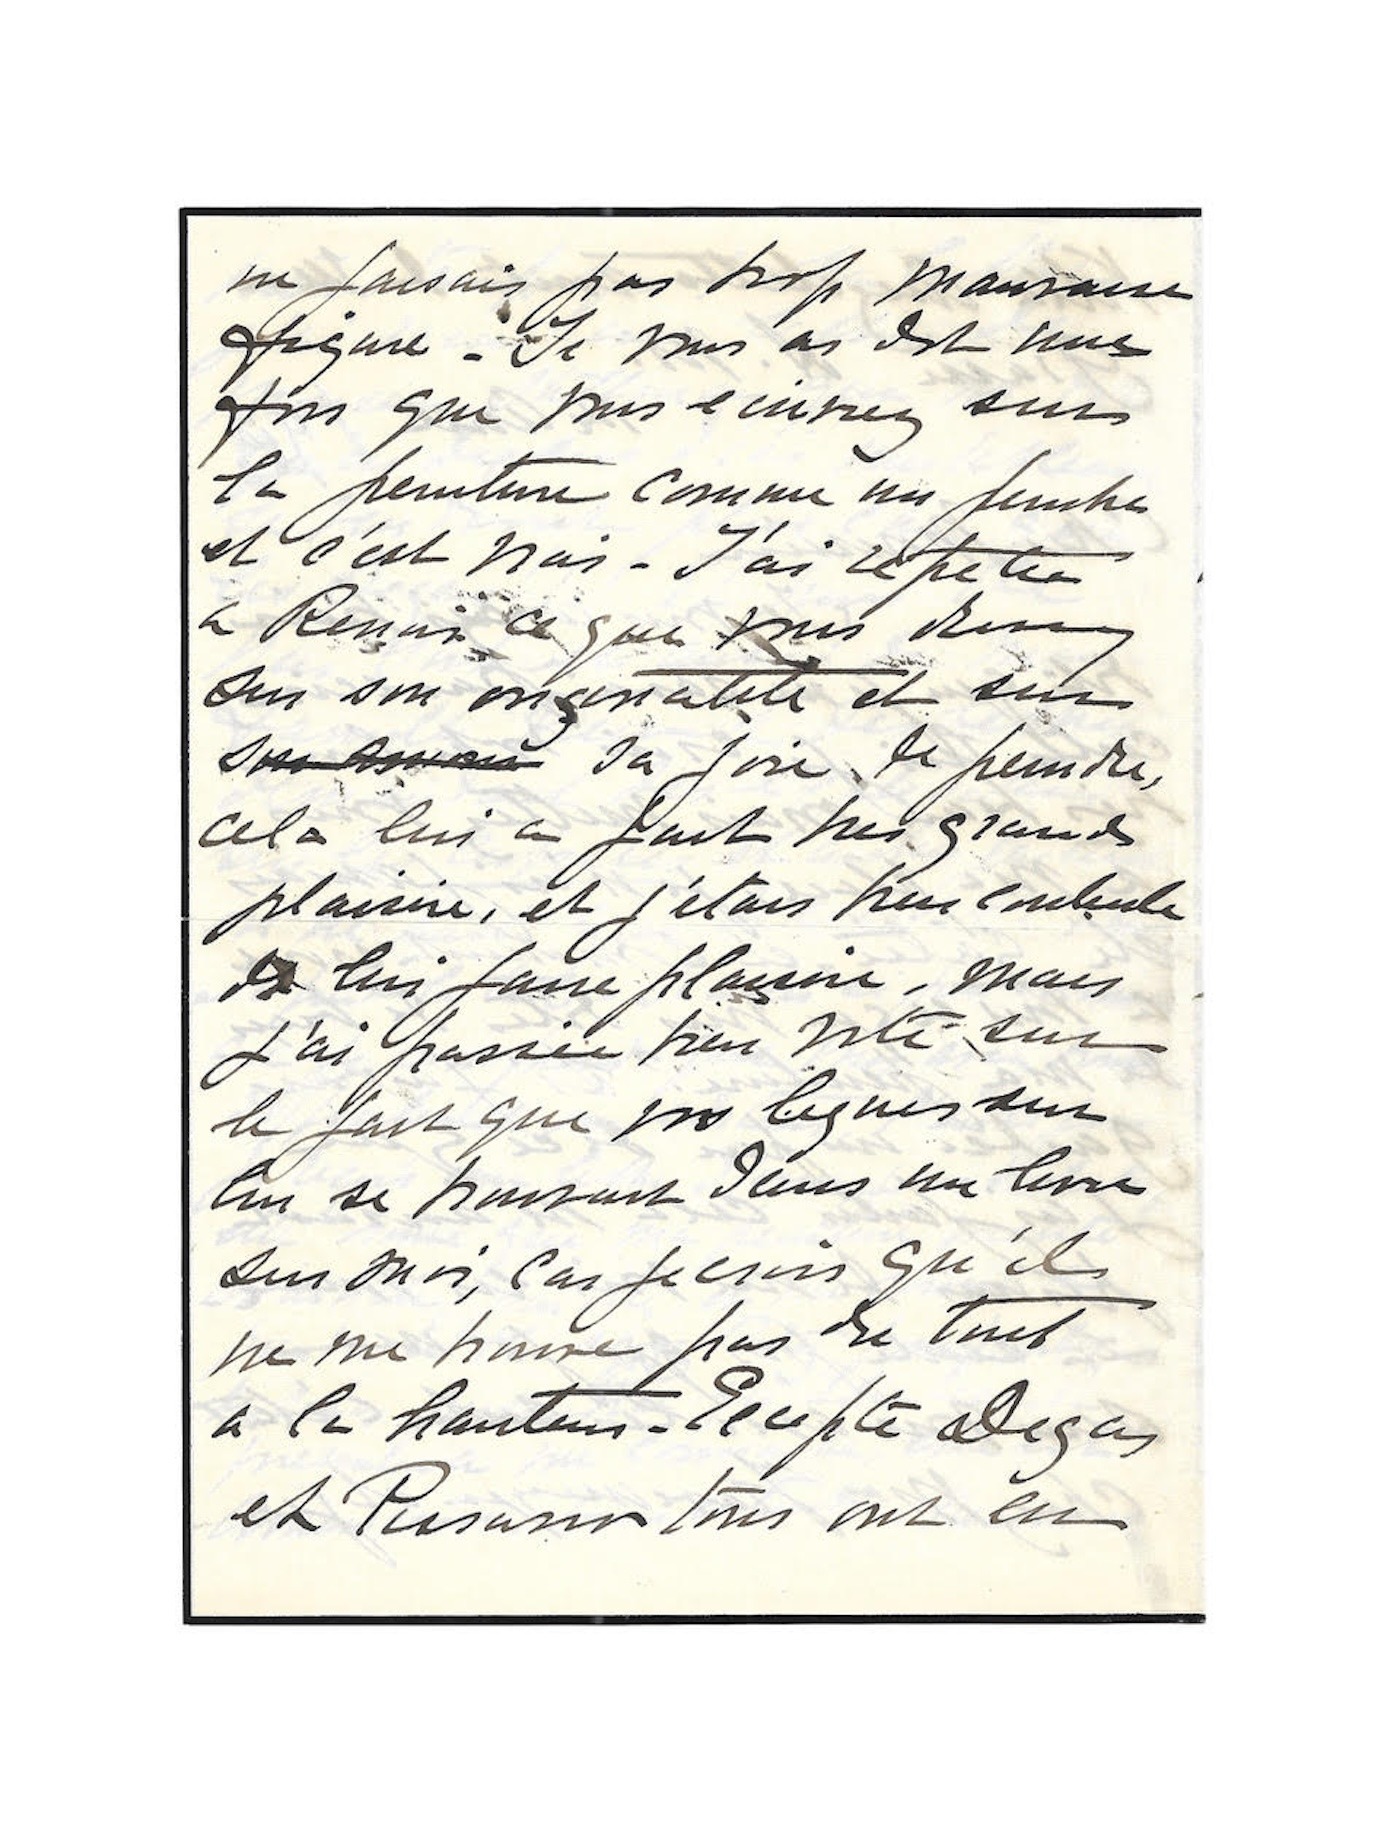 ne faisais pas trop mauvaise
figure - Je vous ai dit une
fois que vous ecrivez sur
la peinture comme un peintre
et c'est vrai - J'ai repetée
a Renoir ce que vous disiez
sur son originalité et sur
son amour sa joie de peindre,
cela lui a fait tres grand
plaisire, et j'étais bien contente
de lui faire plaisire, mais
j'ai passée bien vite sur
le fait que vos lignes sur
lui se trouvait dans un livre
sur moi, car je crois qu'il
ne me trouve pas du tout
a la hauteur - Eccepté Degas
et Pissarro tous ont eu